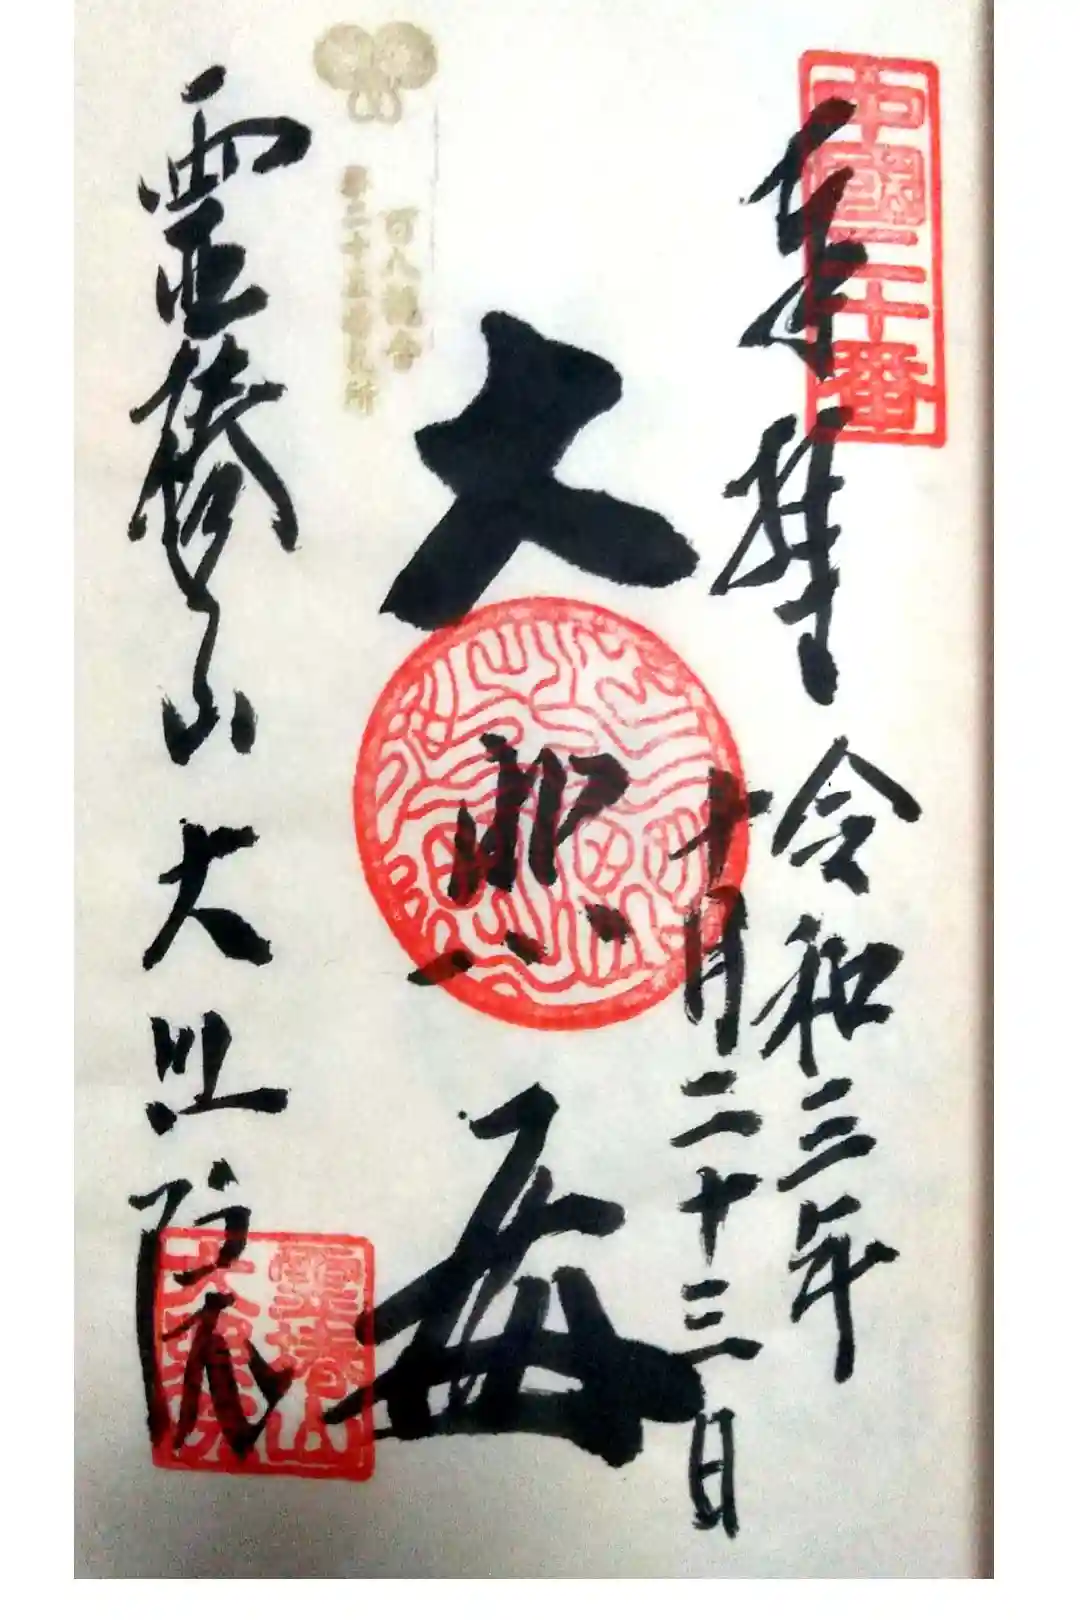 中國二十番
奉拝
令和三年
十月二十三日
大悲
百八観音
第二十五番札所
靈椿山大照院
靈椿山
大照院